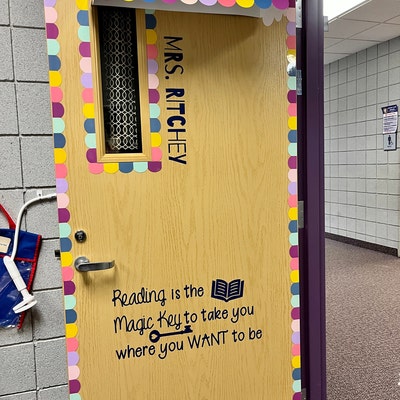 MRS. RITCHEY
Reading is the
Magic Key to take you
where you WANT to be